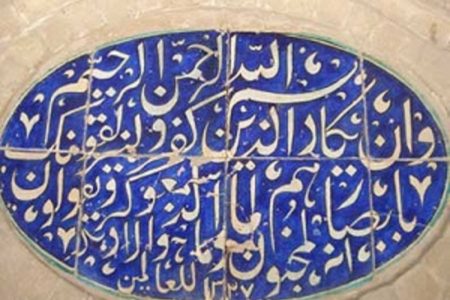 بسم الله الرحمن الرحیم
وان یکاد الذین کفروا لیزلقونک
بابصارهم لما سمعوا الذکر ویقولون
انه لمجنون وما هو الا ذکر
للعالمین ۱۳۳۷